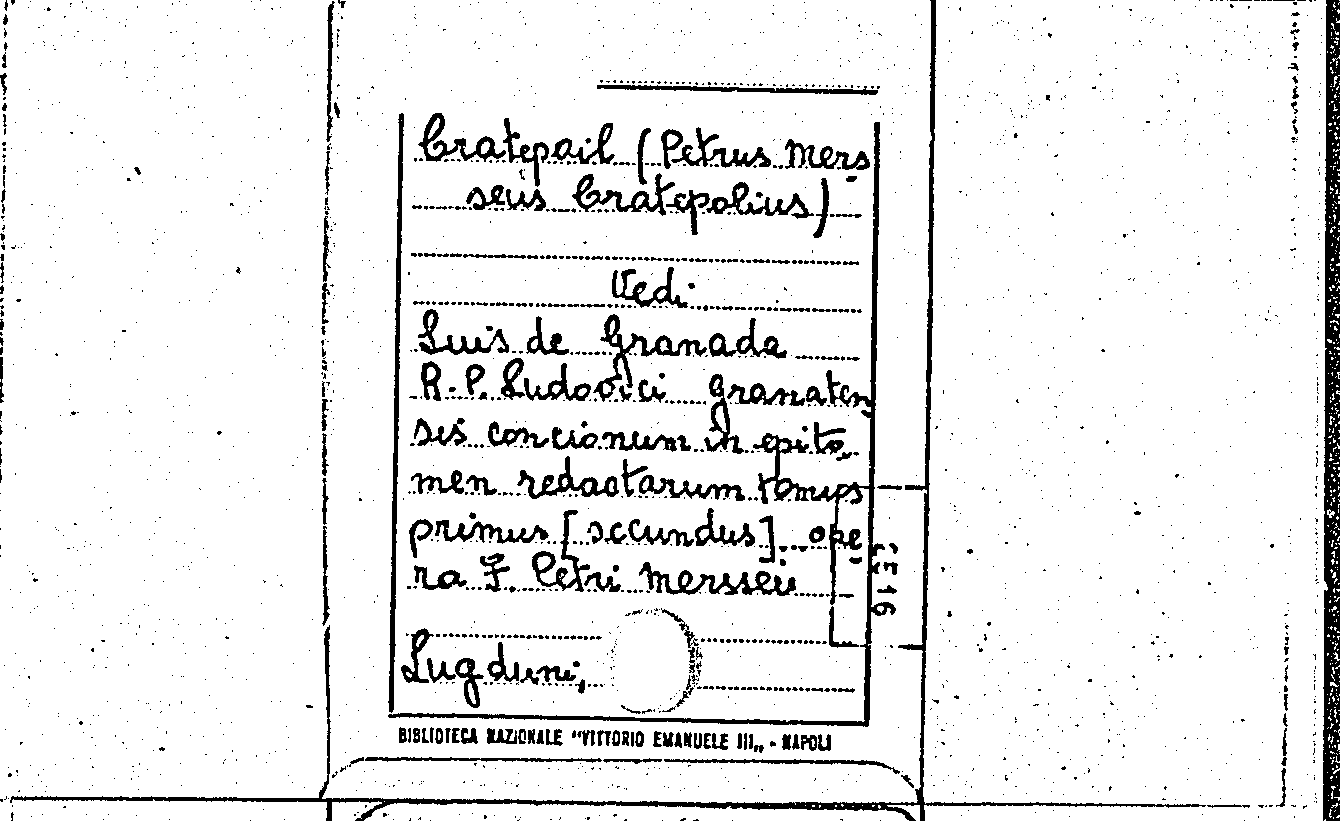 Cratepoil (Petrus Mers
seus Cratepolius)
Vedi
Luis de Granada
R.P. Ludovici granaten
sis concionum in epito
men redactarum tomus
primus [secundus]... ope
ra F. Petri Mersseu
Lugduni,
BIBLIOTECA NAZIONALE "VITTORIO EMANUELE III„ - NAPOLI